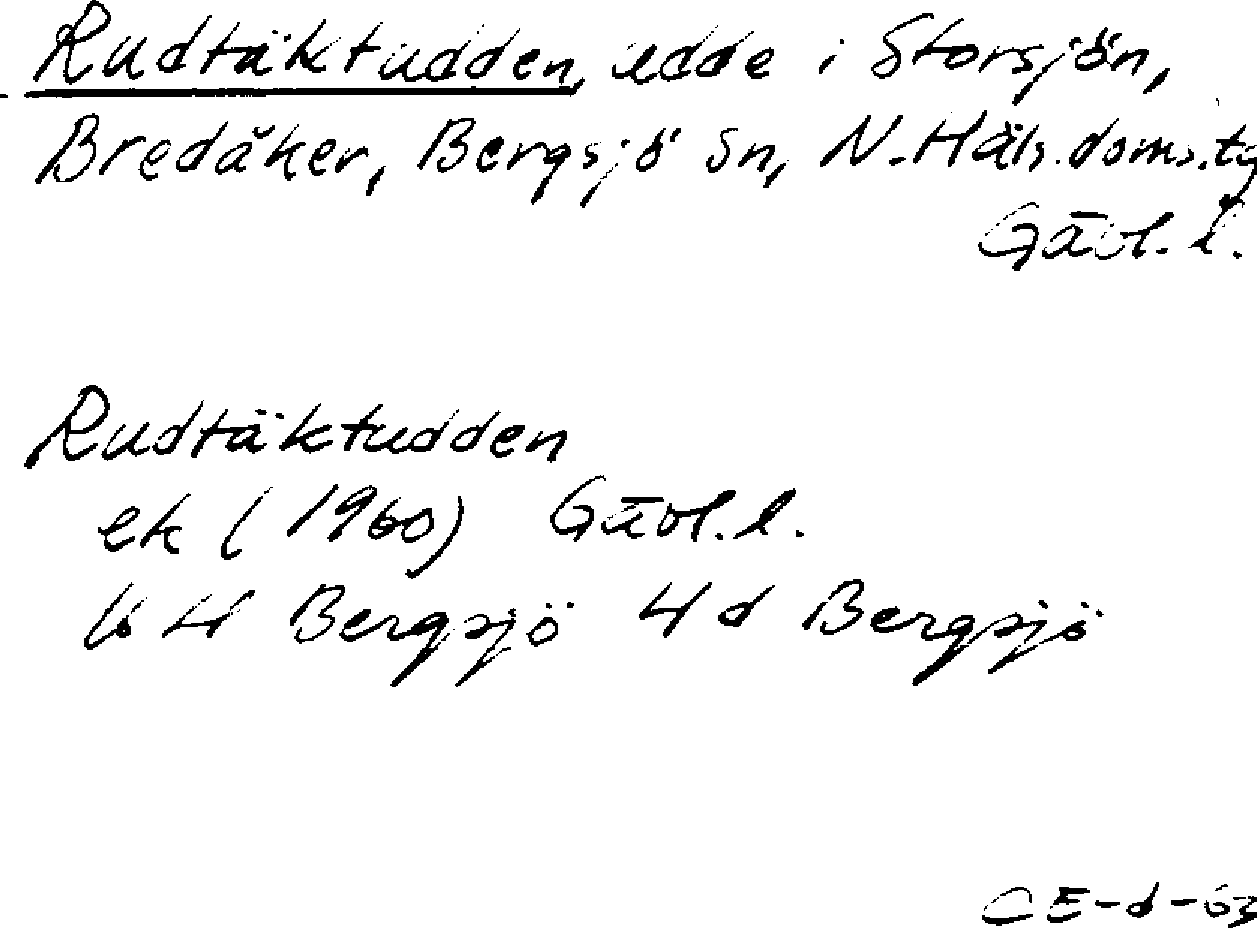 Rudtäktudden, udde i Storsjön,
Bredåker, Bergsjö sn, N. Häls. doms.tg
Gävl. l.
Rudtäktudden
ek (1960) Gävl. l.
16 H Bergsjö 4 d Bergsjö
CE-d-63